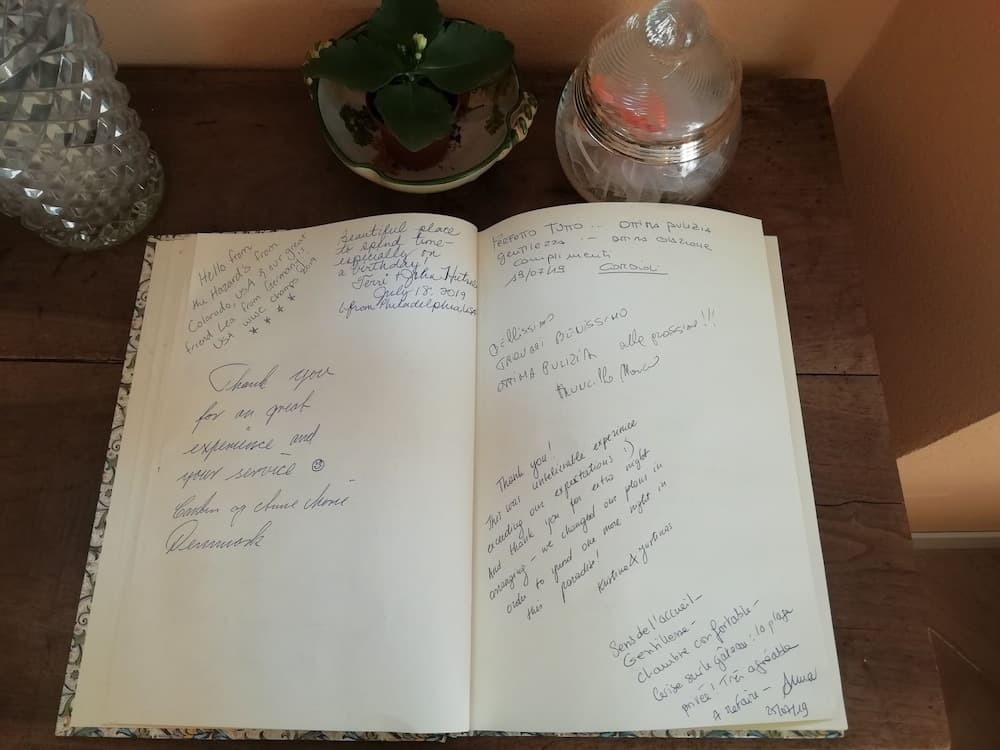 Hello from
the Hazard's from
Colorado, USA & our great
friend Lea from Germany!!
USA WWC Champs
2019
Beautiful place
to spend time-
especially on
a birthday!
Terri & John
July 18, 2019
from Philadelphia USA
Thank you
for an great
experience and
your service
og Anne Marie
Denmark
PERFETTO TUTTO... OTTIMA PULIZIA
gentilezza... OTTIMA COLAZIONE
complimenti
19/07/19
BELLISSIMO
TROVARI BENISSIMO
OTTIMA PULIZIA alla prossima!!!
Thank you!
This was unbelievable experience
exceeding our expectations :)
And thank you for extra night
arranging - we changed our plans in
order to spend one more night in
this paradise!
& Justinas
Sens de l'accueil -
Gentillesse -
Chambre confortable -
Cerise sur le gâteau : la plage
privée ! Très agréable
A refaire - Anna